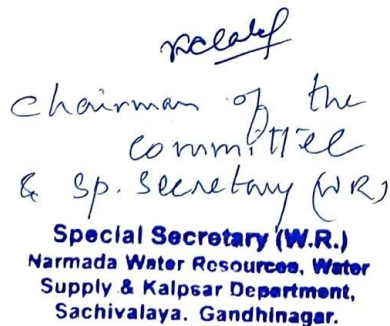 Chairman of the
committee
& Sp. Secretary (WR)
Special Secretary (W.R.)
Narmada Water Resources, Water
Supply & Kalpsar Department,
Sachivalaya. Gandhinagar.